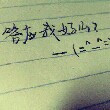 答应我好吗？
—(=^_^=